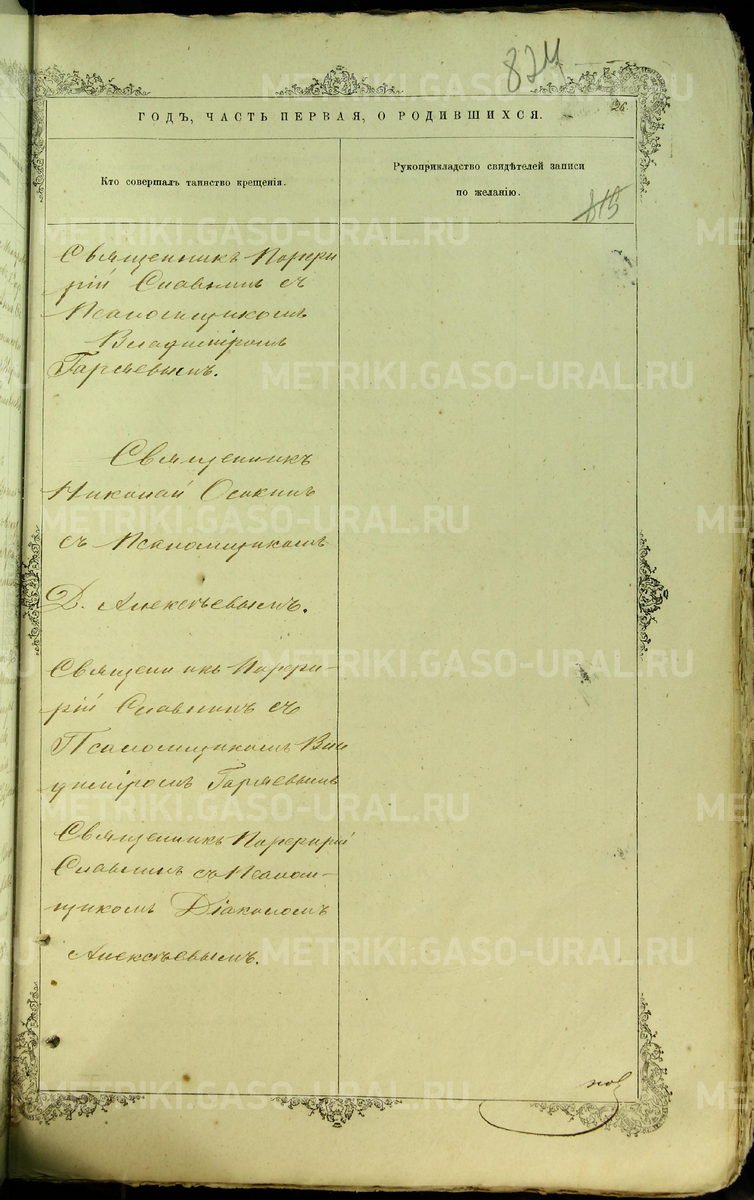 824
26
ГОДЪ, ЧАСТЬ ПЕРВАЯ, О РОДИВШИХСЯ.
Кто совершалъ таинство крещенія.
Рукоприкладство свидѣтелей записи
по желанію.
815
Священникъ Порфи
рій Славнинъ съ
Псаломщикомъ
Владиміромъ
Гаряевымъ.
Священникъ
Николай Осокинъ
съ Псаломщикомъ
Д. Алексѣевымъ.
Священникъ Порфи-
рій Славнинъ съ
Псаломщикомъ Вла
диміромъ Гаряевымъ
Священникъ Порфирій
Славнинъ съ Псалом-
щикомъ Діакономъ
Алексѣевымъ.
METRIKI.GASO-URAL.RU